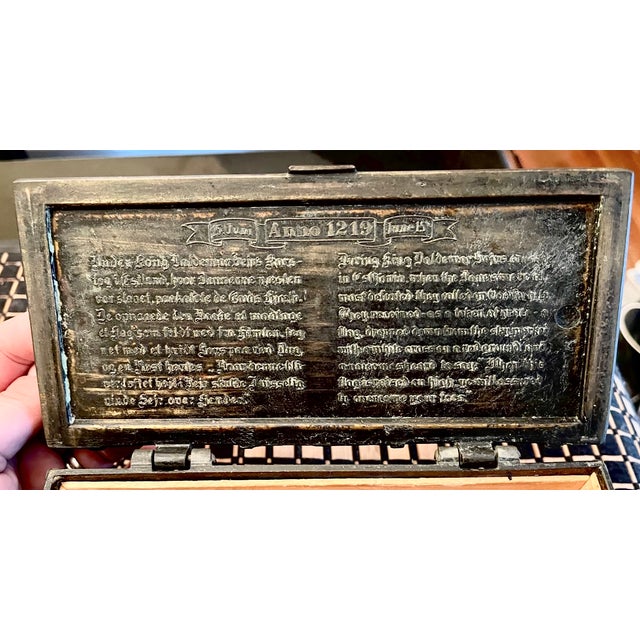 15 Juni Anno 1219 June 15
Under Kong Valdemar Sejrs Kors-
tog i Estland, hvor Danerne næsten
var slaaet, paakaldte de Guds Hjælp.
De opnaaede den Naade at modtage
et Flag som faldt ned fra Himlen, teg
net med et hvidt Kors paa rød Dug,
og en Røst hørtes
løftet højt Sejr skulde I
vinde Sejr over Fienden.
During King Valdemar Sejrs
in Esthonia, when the Danes were al-
most defeated they called on God for help
They received - as a token of grace - a
flag, dropped down from the sky, marked
with a white cross on a red ground, and
a voice was heard to say: "When this
flag is raised on high, ye will assured
ly overcome your foes."